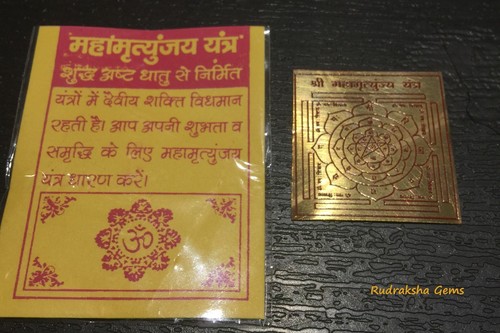 महामृत्युंजय यंत्र
शुद्ध अष्ट धातु से निर्मित
यंत्रों में दैवीय शक्ति विधमान
रहती है। आप अपनी शुभता व
समृद्धि के लिए महामृत्युंजय
यंत्र धारण करें।
ॐ
श्री महामृत्युंजय यंत्र
Rudraksha Gems